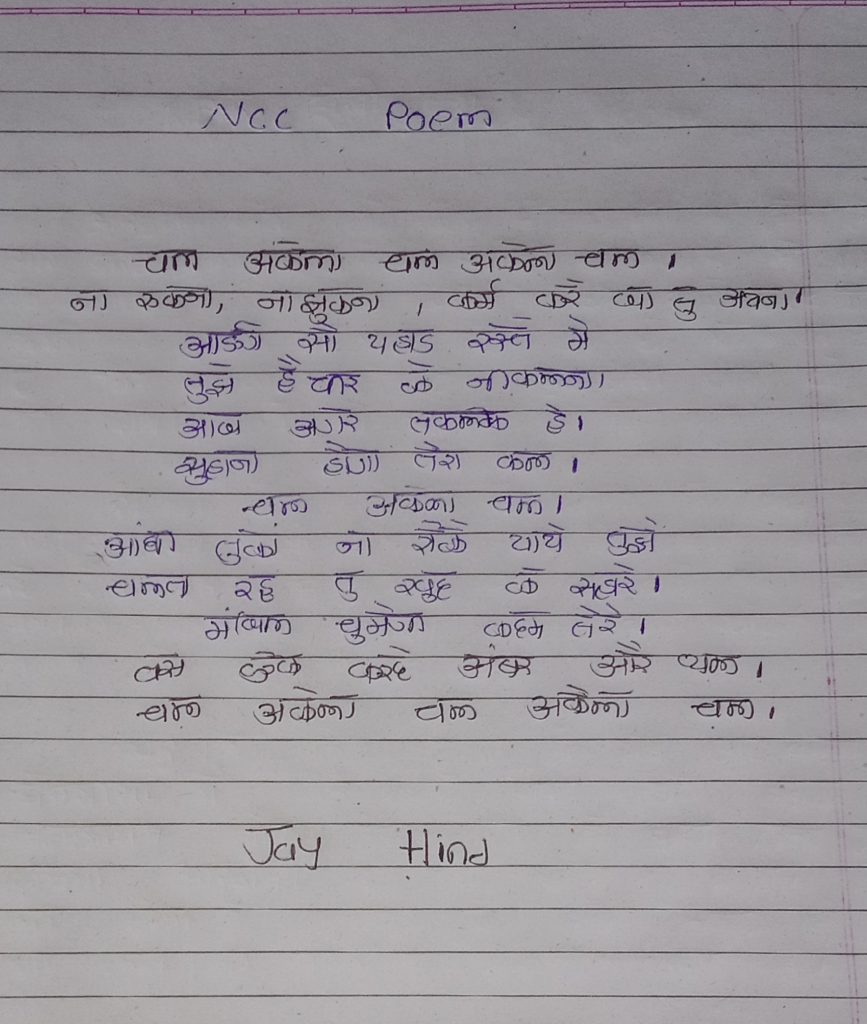 NCC Poem
चल अकेला चल अकेला चल ।
ना रुकना, ना झुकना, कर्म करे जा तु अपना।
आऐंगे सौ पहाड रस्ते मे
तुझे है पार के निकलना।
आज अगर तकलिफ है।
सुहाना होगा तेरा कल ।
चल अकेला चल।
आंधी तुफां ना रोके पाये तुझे
चलता रह तु खुद के सहारे।
मंजिल चुमेगी कदम तेरे।
बस एक करदे अंबर और थल ।
चल अकेला चल अकेला चल ।
Jay Hind